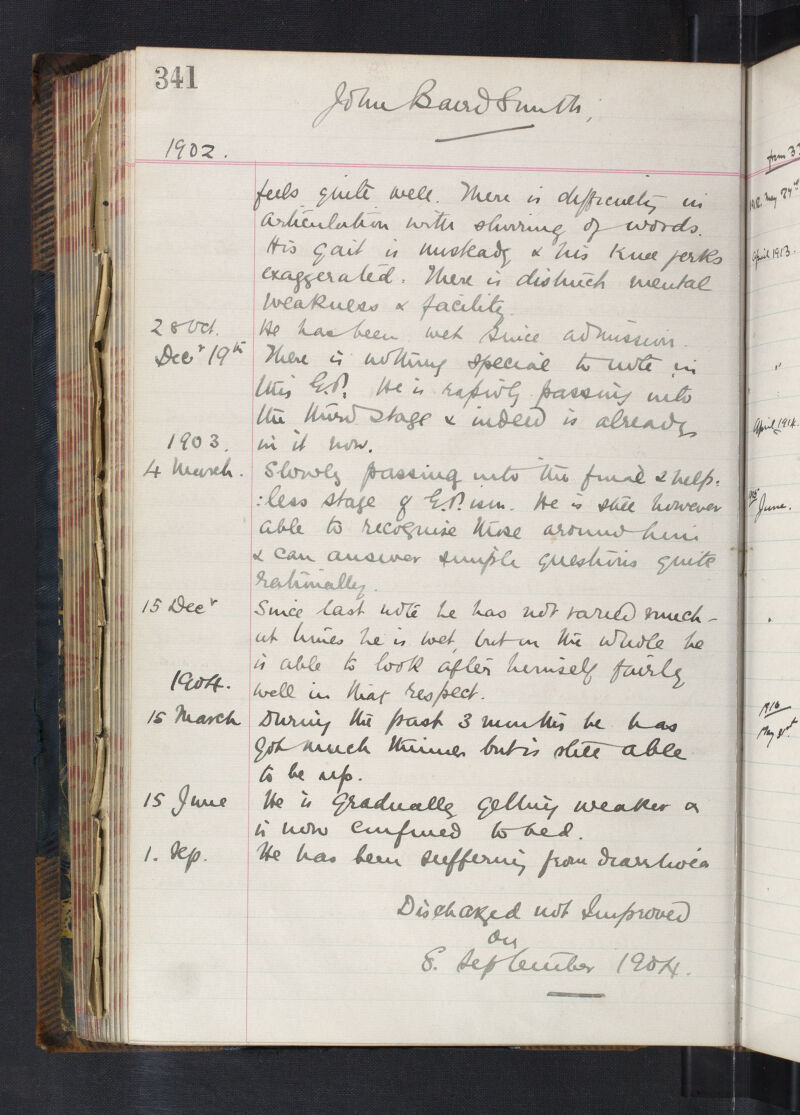 341
John Baird Smith,
1902.
feels quite well. There is difficulty in
articulation with slurring of words.
His gait is unsteady & his knee jerks
exaggerated. There is distinct mental
weakness & facility.
28 Oct. He has been wet since admission.
Decr 19th There is nothing special to note in
this G.P. He is rapidly passing into
the third stage & indeed is already
1903. in it now.
4 March. Slowly passing into the final & help-
:less stage of G.P.ism. He is still however
able to recognise those around him
& can answer simple questions quite
rationally.
15 Decr Since last note he has not varied much -
at times he is wet, but on the whole he
is able to look after himself fairly
1904. well in that respect.
15 March During the past 3 months he has
got much thinner but is still able
to be up.
15 June He is gradually getting weaker &
is now confined to bed.
1. Sep. He has been suffering from diarrhoea
Discharged not Improved
on
8. September 1904.
from 33
May 27th
April 1913.
"
April 1914.
June.
1916
May